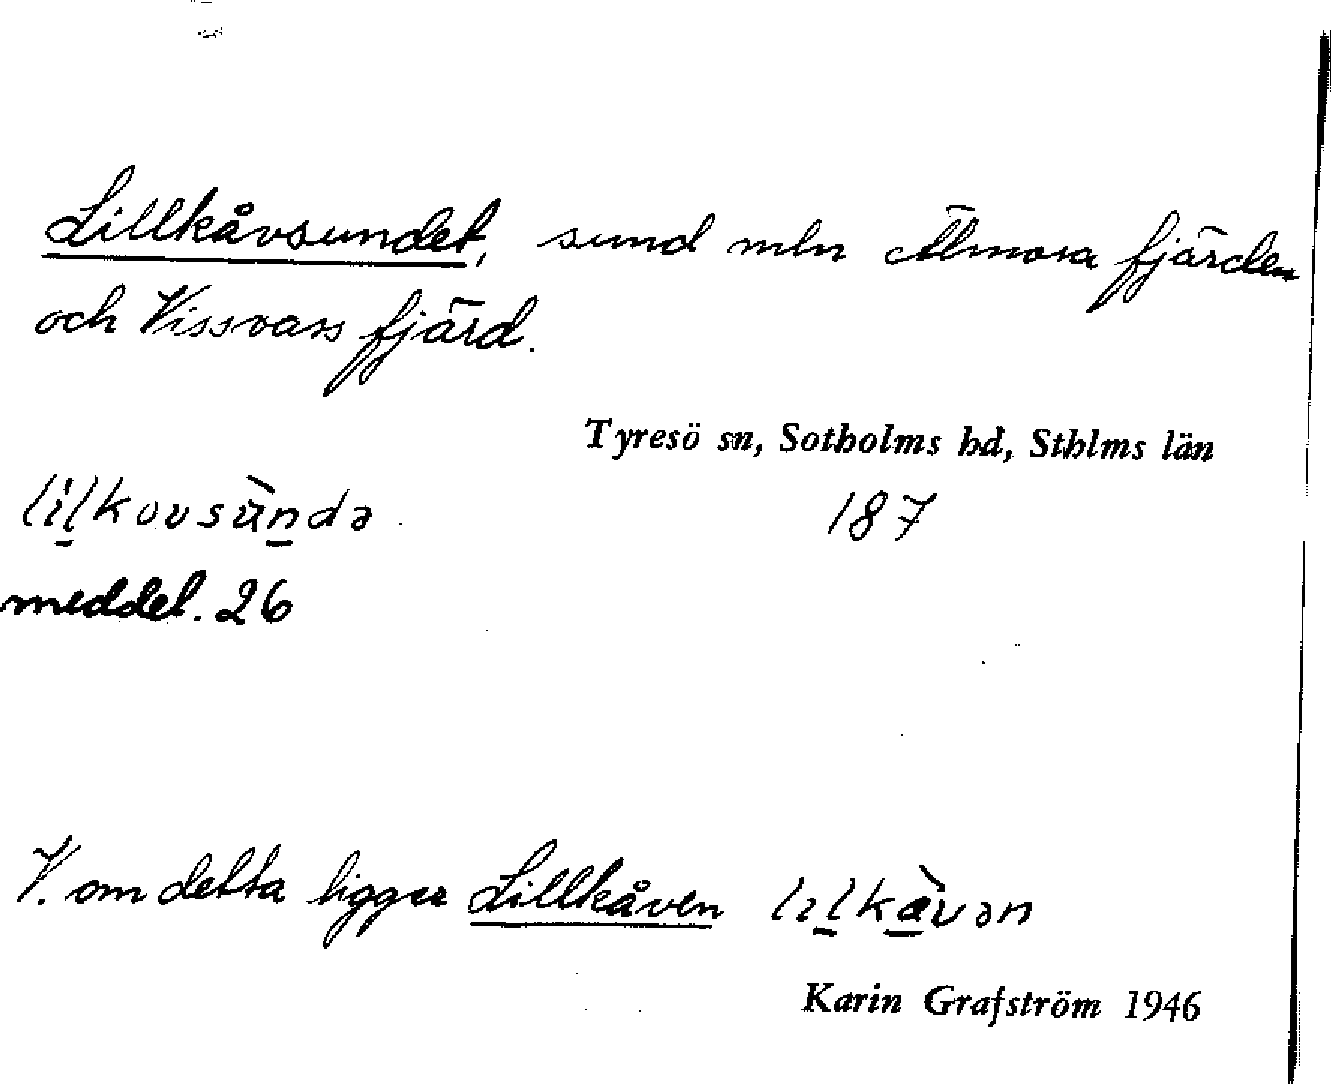 Lillkåvsundet, sund mln Älmora fjärden
och Vissvass fjärd.
Tyresö sn, Sotholms hd, Sthlms län
187
meddel. 26
V. om detta ligger Lillkåven
Karin Grafström 1946